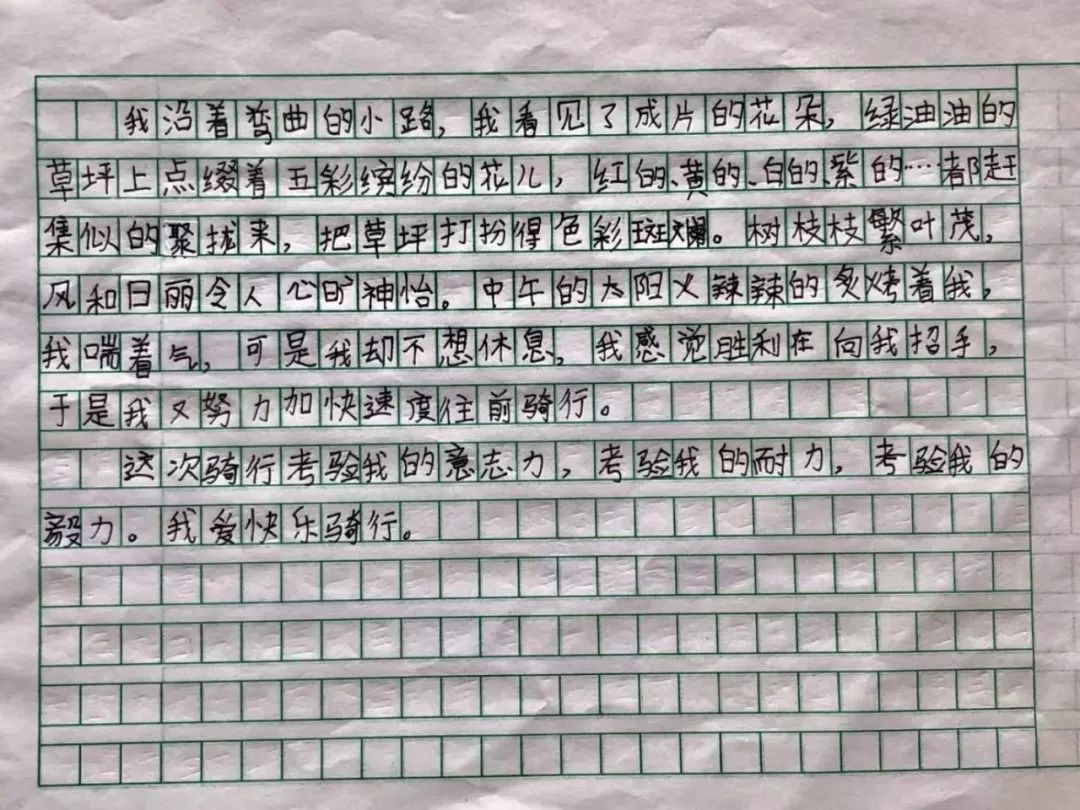 我沿着弯曲的小路，我看见了成片的花朵，绿油油的
草坪上点缀着五彩缤纷的花儿，红的、黄的、白的、紫的……都赶
集似的聚拢来，把草坪打扮得色彩斑斓。树枝枝繁叶茂，
风和日丽令人心旷神怡。中午的太阳火辣辣的炙烤着我，
我喘着气，可是我却不想休息，我感觉胜利在向我招手，
于是我又努力加快速度往前骑行。
这次骑行考验我的意志力，考验我的耐力，考验我的
毅力。我爱快乐骑行。